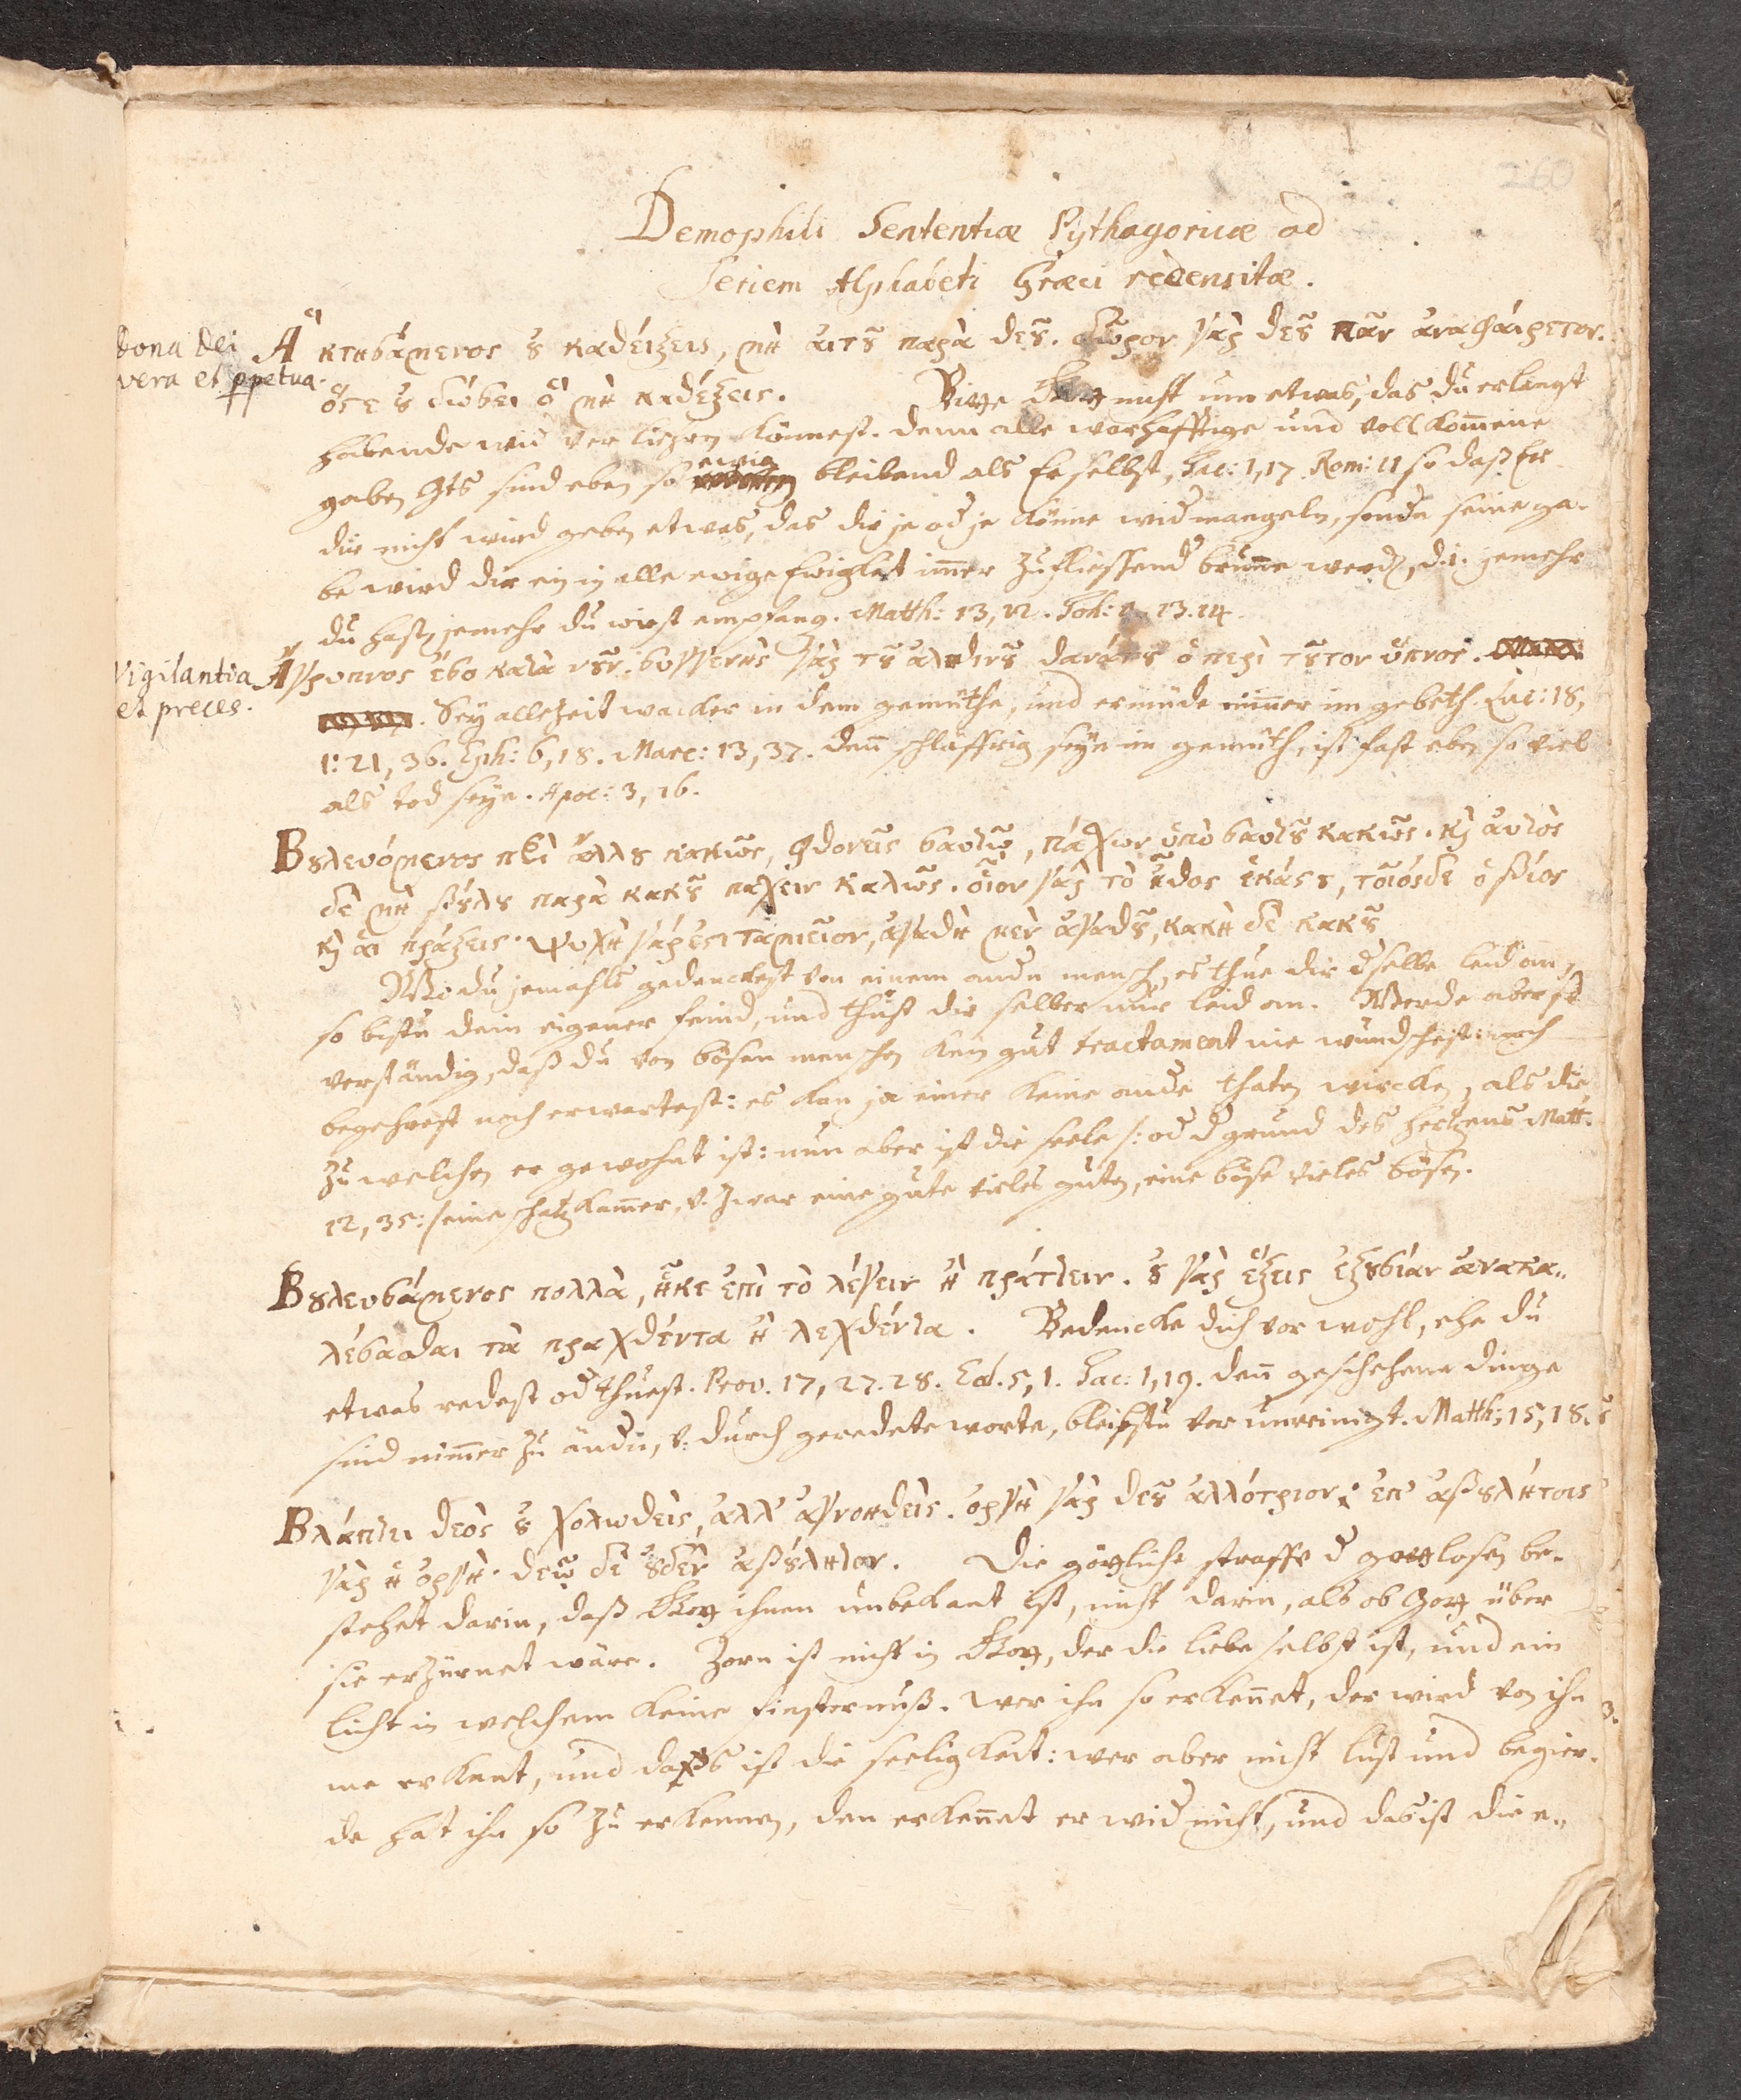 260
Demophili Sententiæ Pythagoricæ ad
Seriem Alphabeti Græci recensitæ.
Dona Dei
vera et ppetua.
Ἃ κτησάμενος ȣ καθέξεις, μὴ αἰτȣ παρὰ θεȣ. δῶρον γὰρ θεȣ πᾶν ἀναφαίρετον.
ὅτε ȣ δώσει ὃ μὴ καθέξεις. Bitte Gott nicht um etwas, das du erlangt
habende wid verliehren könnest. denn alle warhafftige und vollkom̄ene
gaben Gts sind eben so ewig bleibend als Er selbst, Jac: 1,17. Rom: 11 so daß Er
dir nicht wird geben etwas, das dir je od je könne wid mangeln, sondn seine ga-
be wird dir ein in alle ewige Ewigkeit im̄er zufliessend brun̄e werdn, d. i. jemehr
du hast, jemehr du wirst empfang. Matth: 13,12. Joh: 4. 13.14.
Vigilantia
et preces.
Ἄγρυπνος ἔσο κατὰ νȣν. συγγενὴς γὰρ τȣ ἀληθινȣ θανάτȣ ὁ περὶ τȣτον ὕπνος.
Sey allezeit wacker in dem gemüthe, und ermüde nim̄er im gebeth. Luc: 18,
1: 21, 36. Eph: 6,18. Marc: 13, 37. den̄ schläffrig seyn im gemüth, ist fast eben so viel
als tod seyn. Apoc: 3, 16.
Βȣλευόμενος πὲι ἄλλȣ κακῶς, φθονεῖς σαυτῷ, πάσχων ὑπὸ σαυτȣ κακῶς. κὶ αὐτὸς
δὲ μὴ βȣλȣ παρὰ κακȣ πάσχειν καλῶς. οἷον γὰρ τὸ ἦθος ἑκάστȣ, τοιόσδε ὁ βίος
κὶ αἱ πράξεις. ψυχὴ γάρ ἐστι ταμιεῖον, ἀγαθὴ μὲν ἀγαθȣ, κακὴ δὲ κακȣ
Wo du jemahls gedenckest von einem andn mensch, es thue dir dselbe leid an,
so bistu dein eigener feind, und thust dir selber nur leid an. Werde aber so
verständig, daß du von bösen menschen kein gut tractament nie wundschest: noch
begehrest noch erwartest: es kan ja einer keine ande thaten wircken, als die
zu welchen er gewohnt ist: nun aber ist die seele /: od d grund des hertzens Matt:
12, 35: / eine schatzkam̄er, v. zwar eine gute vieles guten, eine böse vieles bösen.
Βȣλευσάμενος πολλὰ, ἧκε ἐπὶ τὸ λέγειν ἢ πράττειν. ȣ γὰρ ἕξεις ἐξȣσίαν ἀνακα-
λέσασθαι τὰ πραχθέντα ἢ λεχθέντα. Bedencke dich vor wohl, ehe du
etwas redest od thuest. Prov. 17, 27. 28. Ecl. 5, 1. Jac: 1,19. den̄ geschehene dinge
sind nim̄er zu ändn, v. durch geredete worte, bleibstu verunreinigt. Matth: 15, 18.
Βλάπτει θεὸς ȣ χολωθεὶς, ἀλλ' ἀγνοηθείς. ὀργὴ γὰρ θεȣ ἀλλότριον· ἐπ' ἀβȣλήτοις
γὰρ ἡ ὀργή. θεῷ δὲ ȣδὲν ἀβȣλητον. Die göttliche straffe d gottlosen be-
stehet darin, daß Gott ihnen unbekant ist, nicht darin, als ob Gott über
sie erzürnet wäre. Zorn ist nicht in Gott, der die liebe selbst ist, und ein
licht in welchem keine finsternuß. wer ihn so erken̄et, der wird von ih-
me erkant, und das ist die seeligkeit: wer aber nicht lust und begier-
de hat ihn so zu erkennen, den erken̄et er wid nicht, und das ist die e-